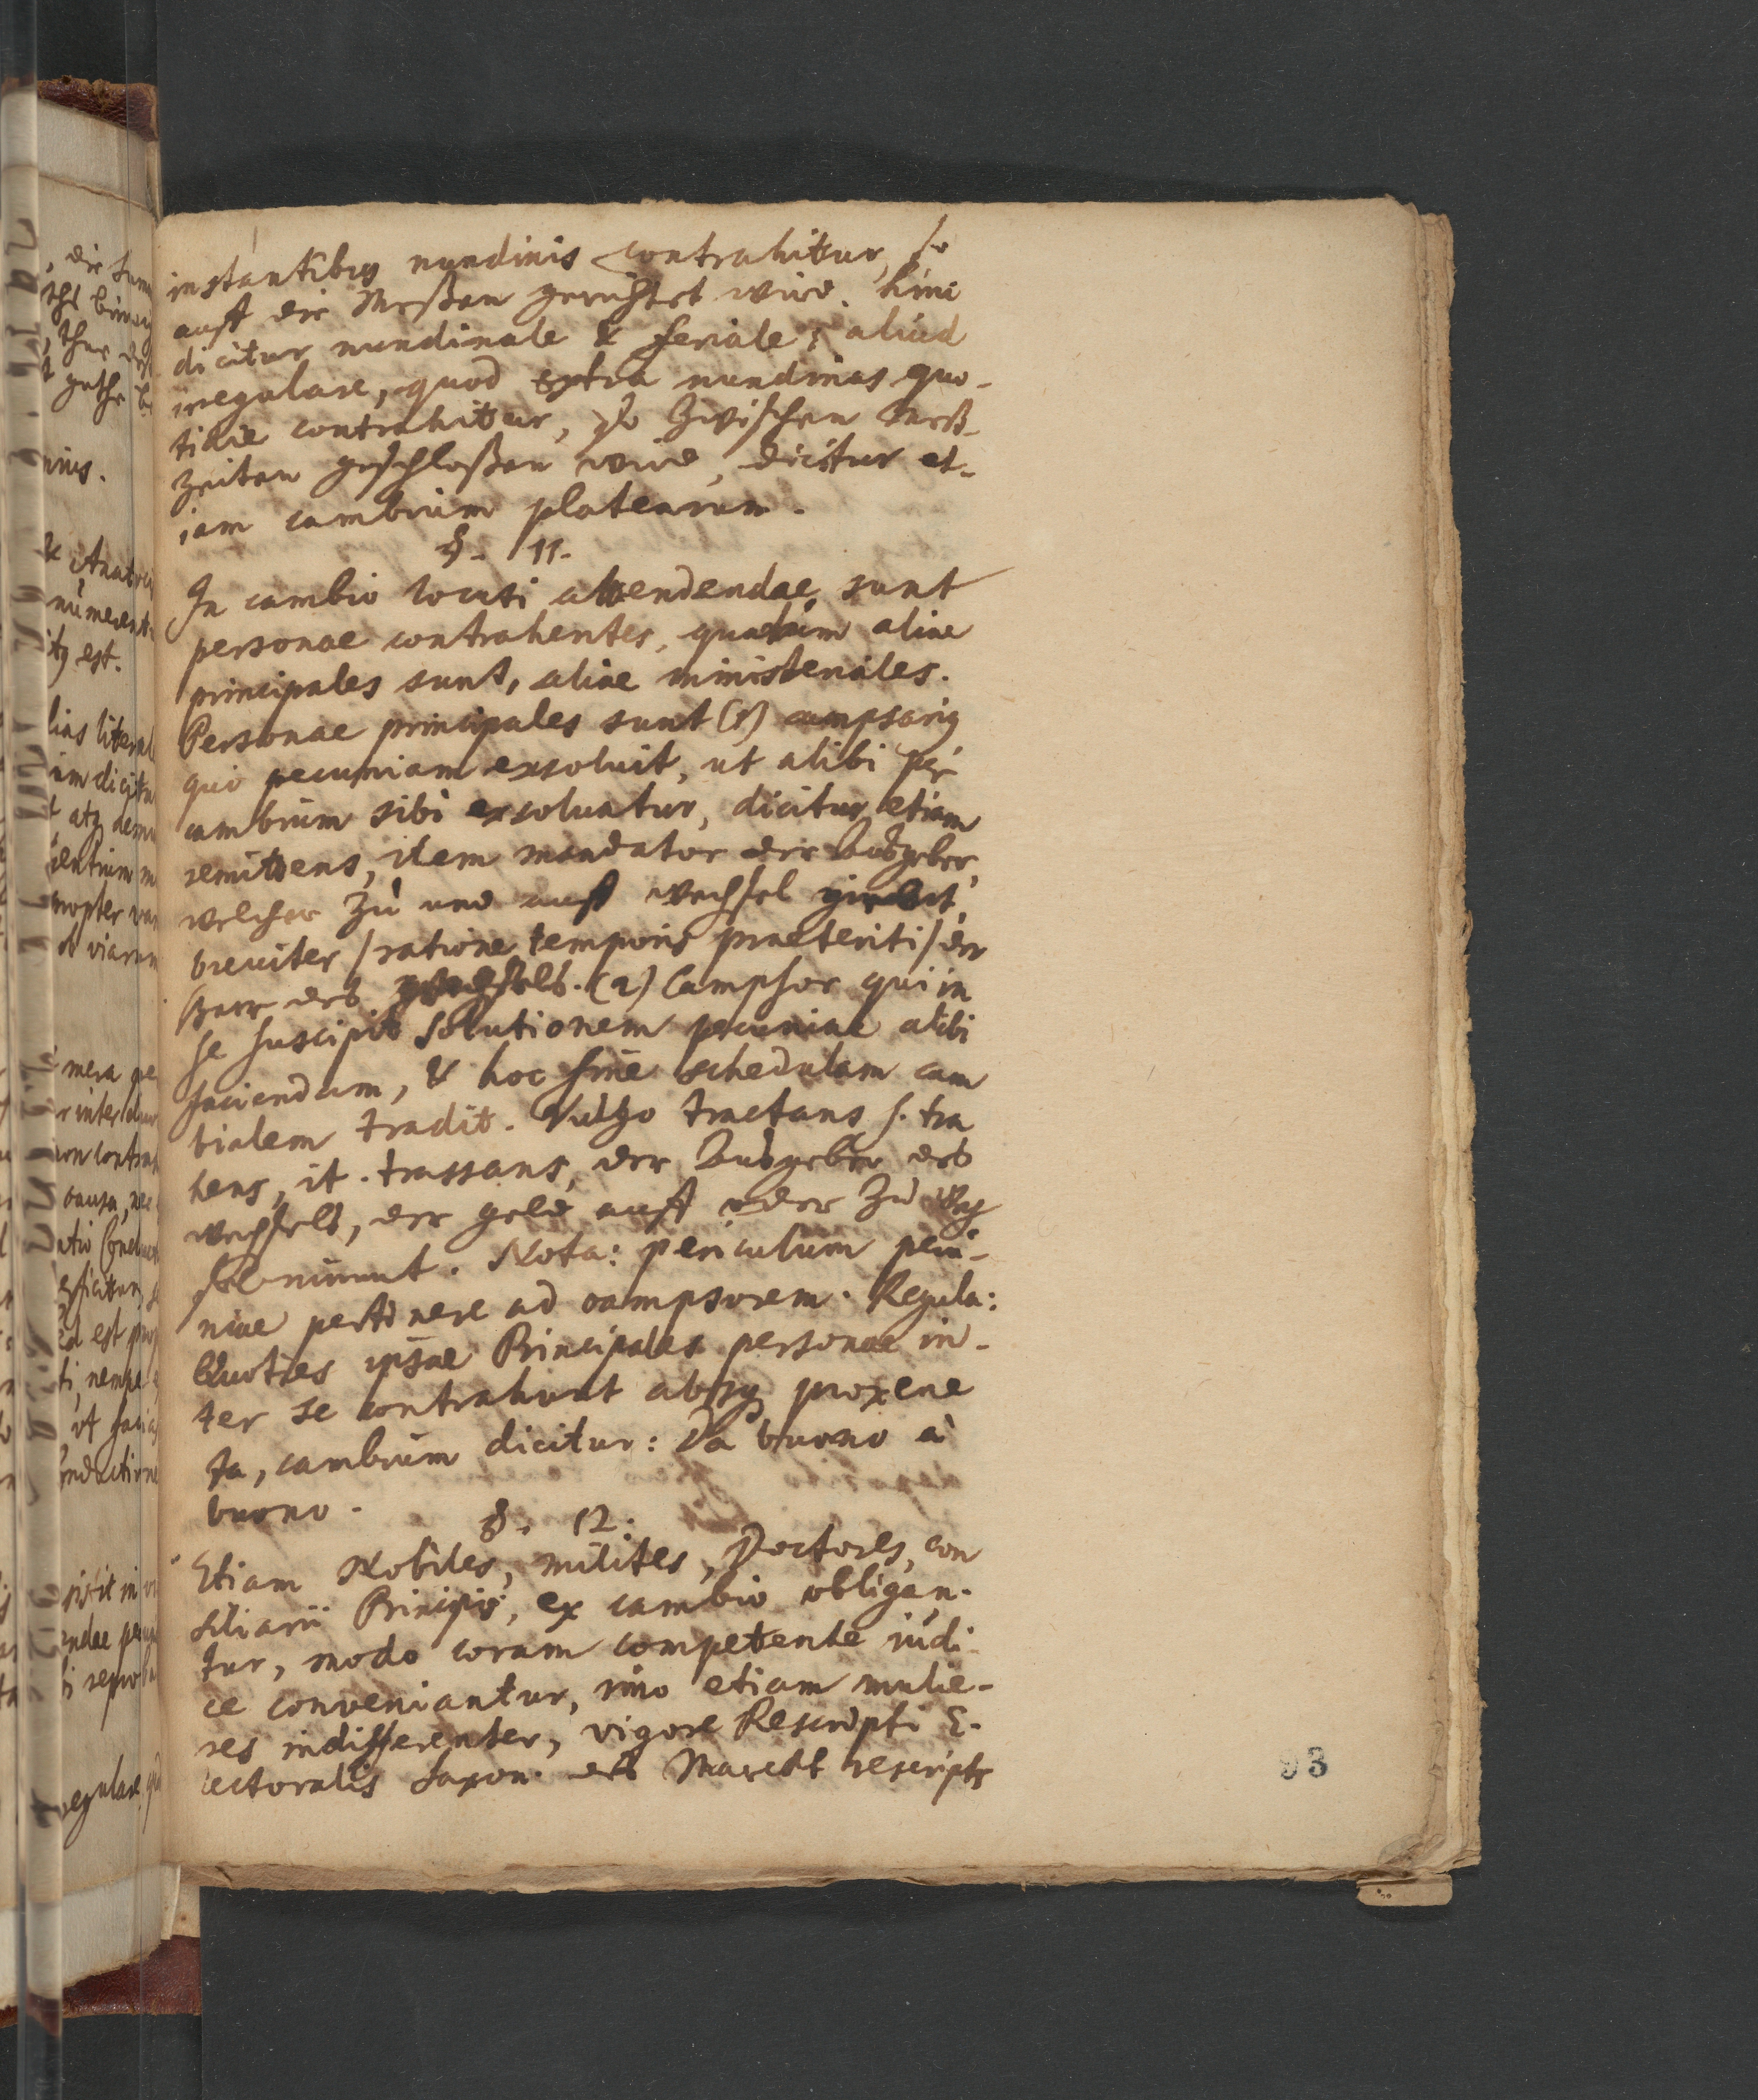 instantibus nundinis contrahitur, so
auff die Meßen gerichtet wird. hinc
dicitur nundinale & feriale; aliud
irregulare, quod extra nundinas quo-
tidie contrahitur, so zwischen Meß-
zeiten geschloßen wird, dicitur et-
iam cambium platearum.
§. 11.
In cambio locuti attendendae sunt
personae contrahentes, quarum aliae
principales sunt, aliae ministeriales.
Personae principales sunt (1) campsarius
qui pecuniam exsoluit, ut alibi per
cambium sibi exsoluatur, dicitur etiam
remittens, item mandator der Außgeber,
welcher zu und auff wechsel giebet,
breuiter /ratione temporis praeteriti/ der
Herr des wechsels. (2) Campsor qui in
se suscipit solutionem pecuniae alibi
faciendam, & hoc fine schedulam cam
bialem tradit. Vulgo tractans s. tra
hens, it. trassans, der Außgeber des
wechsels, der geld auff oder zu Wech
sel nimmt. Nota: periculum pecu-
niae pertinere ad campsorem. Regula:
Quoties ipsae Principales personae in-
ter se contrahunt absq; proxene
ta, cambium dicitur: Da buono à
buono.
§. 12.
Etiam Nobiles, milites, Doctores, con
siliarii Principis, ex cambio obligan-
tur, modo coram competente iudi
ce conveniantur, imo etiam mulie-
res indifferenter, vigore Rescripti E-
lectoralis Saxon. des Marckt rescripts
93